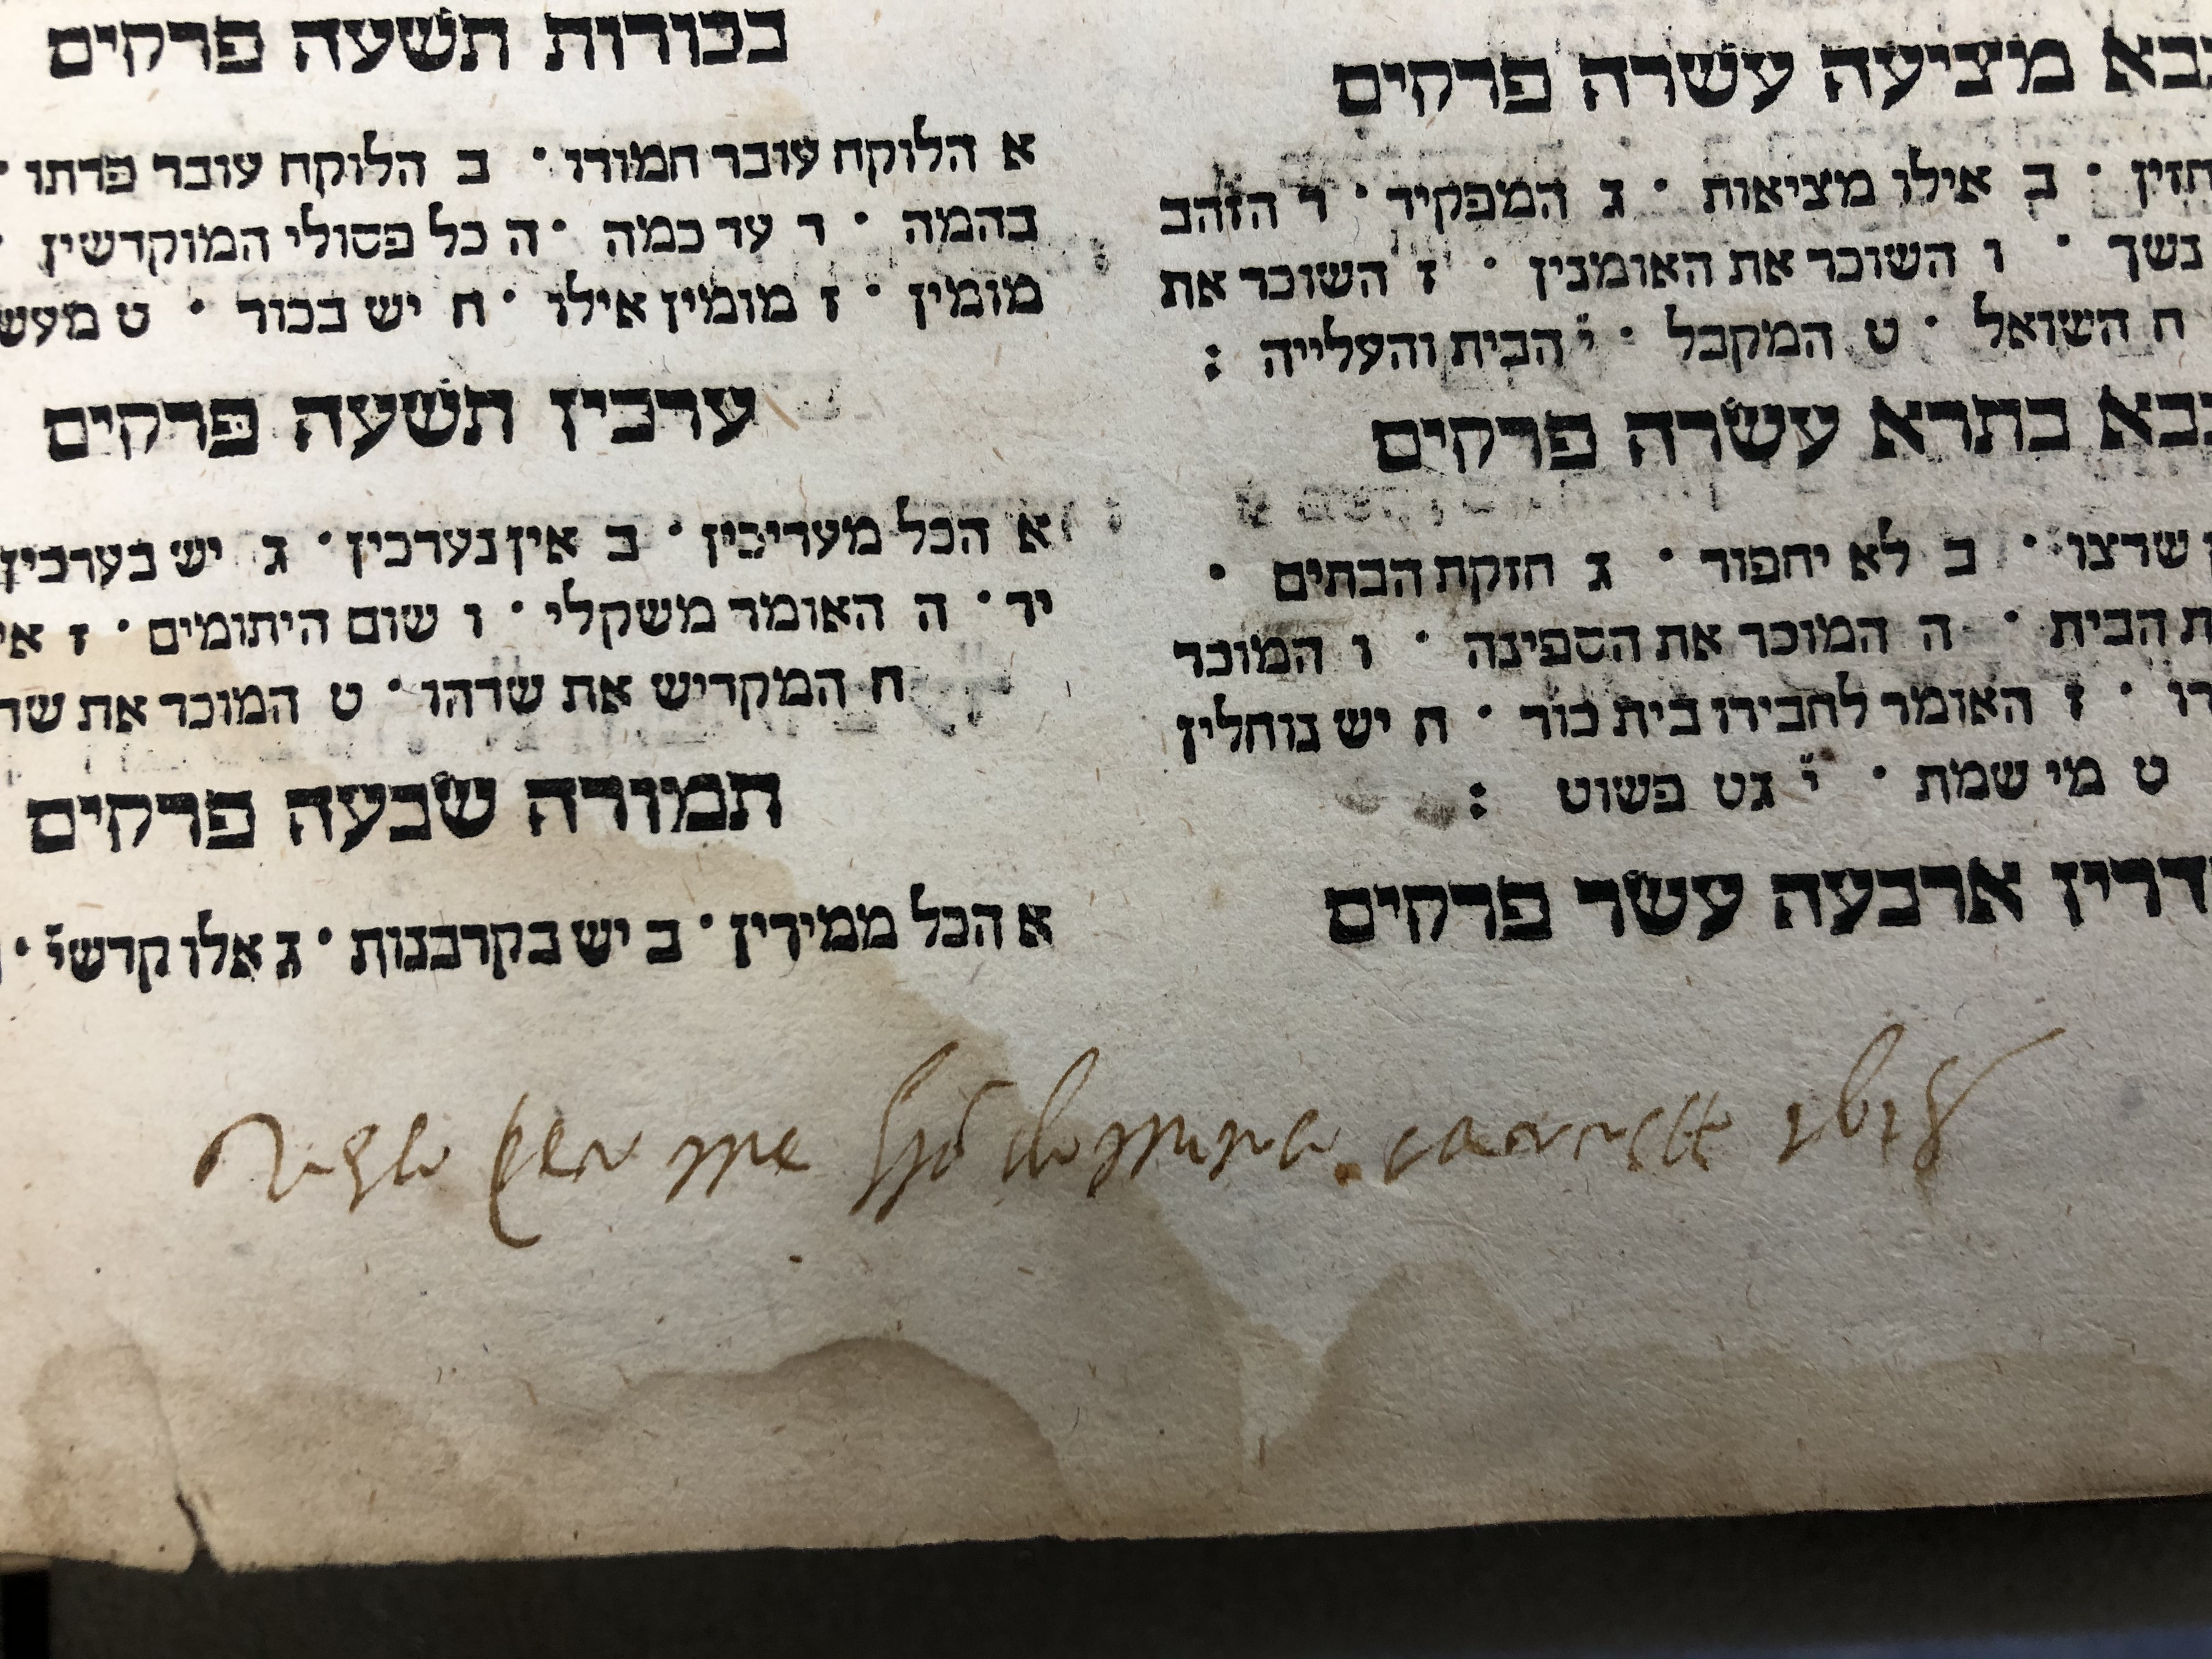 בבא מציעה עשרה פרקים
ב אילו מציאות · ג המפקיד · ד הזהב
נשך · ו השוכר את האומנין · ז השוכר את
ח השואל · ט המקבל · י הבית והעלייה :
בבא בתרא עשרה פרקים
שרצו · ב לא יחפור · ג חזקת הבתים ·
ת הבית · ה המוכר את הספינה · ו המוכר
ז האומר לחבירו בית כור · ח יש נוחלין
ט מי שמת · י גט פשוט :
דרין ארבעה עשר פרקים
בכורות תשעה פרקים
א הלוקח עובר חמורו · ב הלוקח עובר פרתו ·
בהמה · ד עד כמה · ה כל פסולי המוקדשין ·
מומין · ז מומין אילו · ח יש בכור · ט מעש
ערכין תשעה פרקים
א הכל מעריכין · ב אין נערכין · ג יש בערכין
יד · ה האומר משקלי · ו שום היתומים · ז אי
ח המקדיש את שדהו · ט המוכר את שד
תמורה שבעה פרקים
א הכל ממירין · ב יש בקרבנות · ג אלו קדשי ·